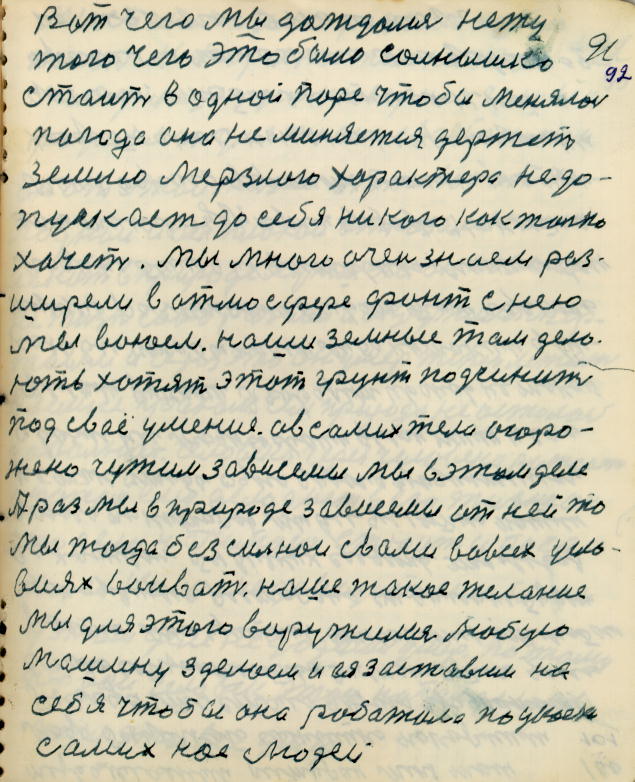 Вот чего мы дождалия нету
того чего это было солнышко
91
92
стоить в одной поре чтобы менялось
погода она не миняется держеть
землю мерзлого характера не до-
пускает до себя никого как только
хачеть. мы много очен знаем раз-
ширели в атмосфере фронт с нею
мы воюем. наши земные там дела-
ють хотят этот грунт подчинить
под сваё умение. а в самих тела огоро-
жено чужим зависемы мы в этом деле
А раз мы в природе зависемы от ней то
мы тогда безсилнои свами вовсех усло-
виях воивать. наше такое желание
мы для этого воружилия любую
машину зделоем и ея заставим на
себя чтобы она работала
самих нас людей